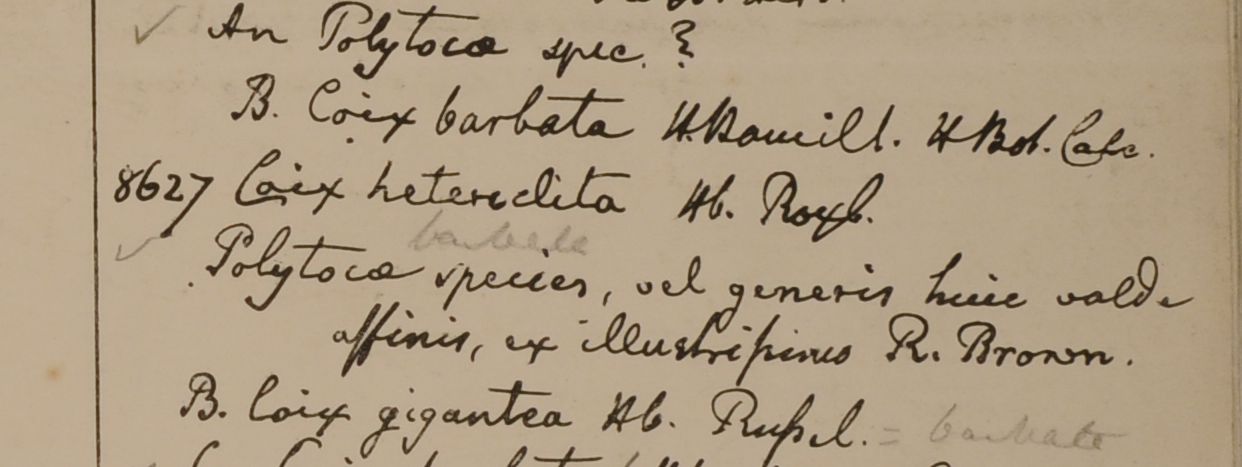 ✓ An Polytocæ spec. ?
B. Coix barbata H. Hamill. H Bot. Calc.
8627 Coix heteroclita Hb. Roxb.
barbata
✓ Polytocæ species, vel generis huic valde
affinis, ex illustrissimo R. Brown.
B. Coix gigantea Hb. Russel. = barbata